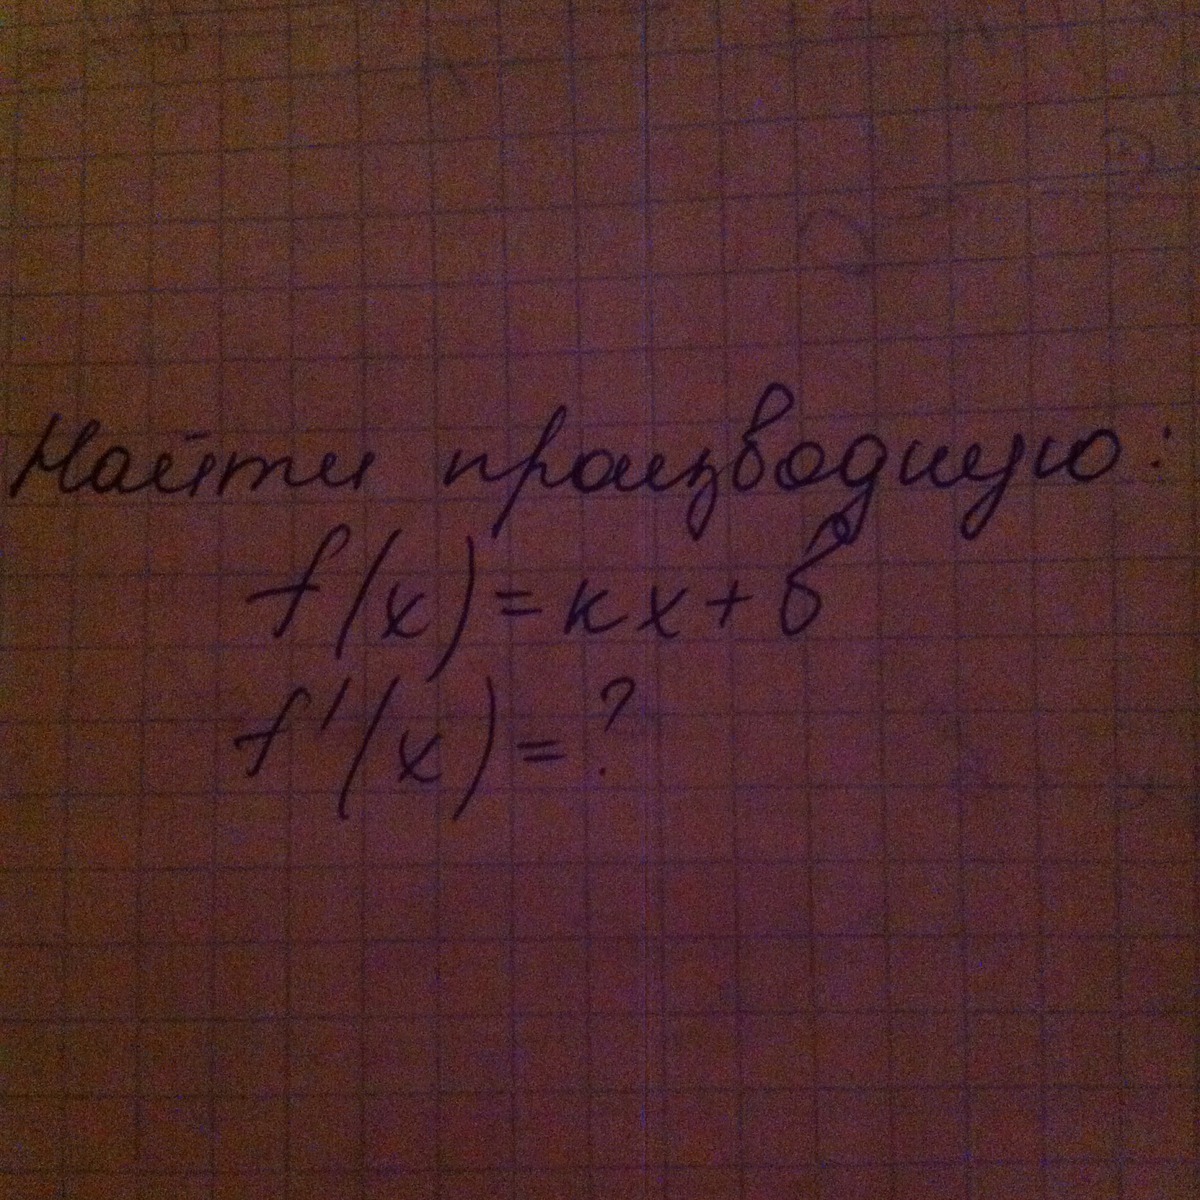 Найти производную:
f(x)=кx+b
f'(x)=?